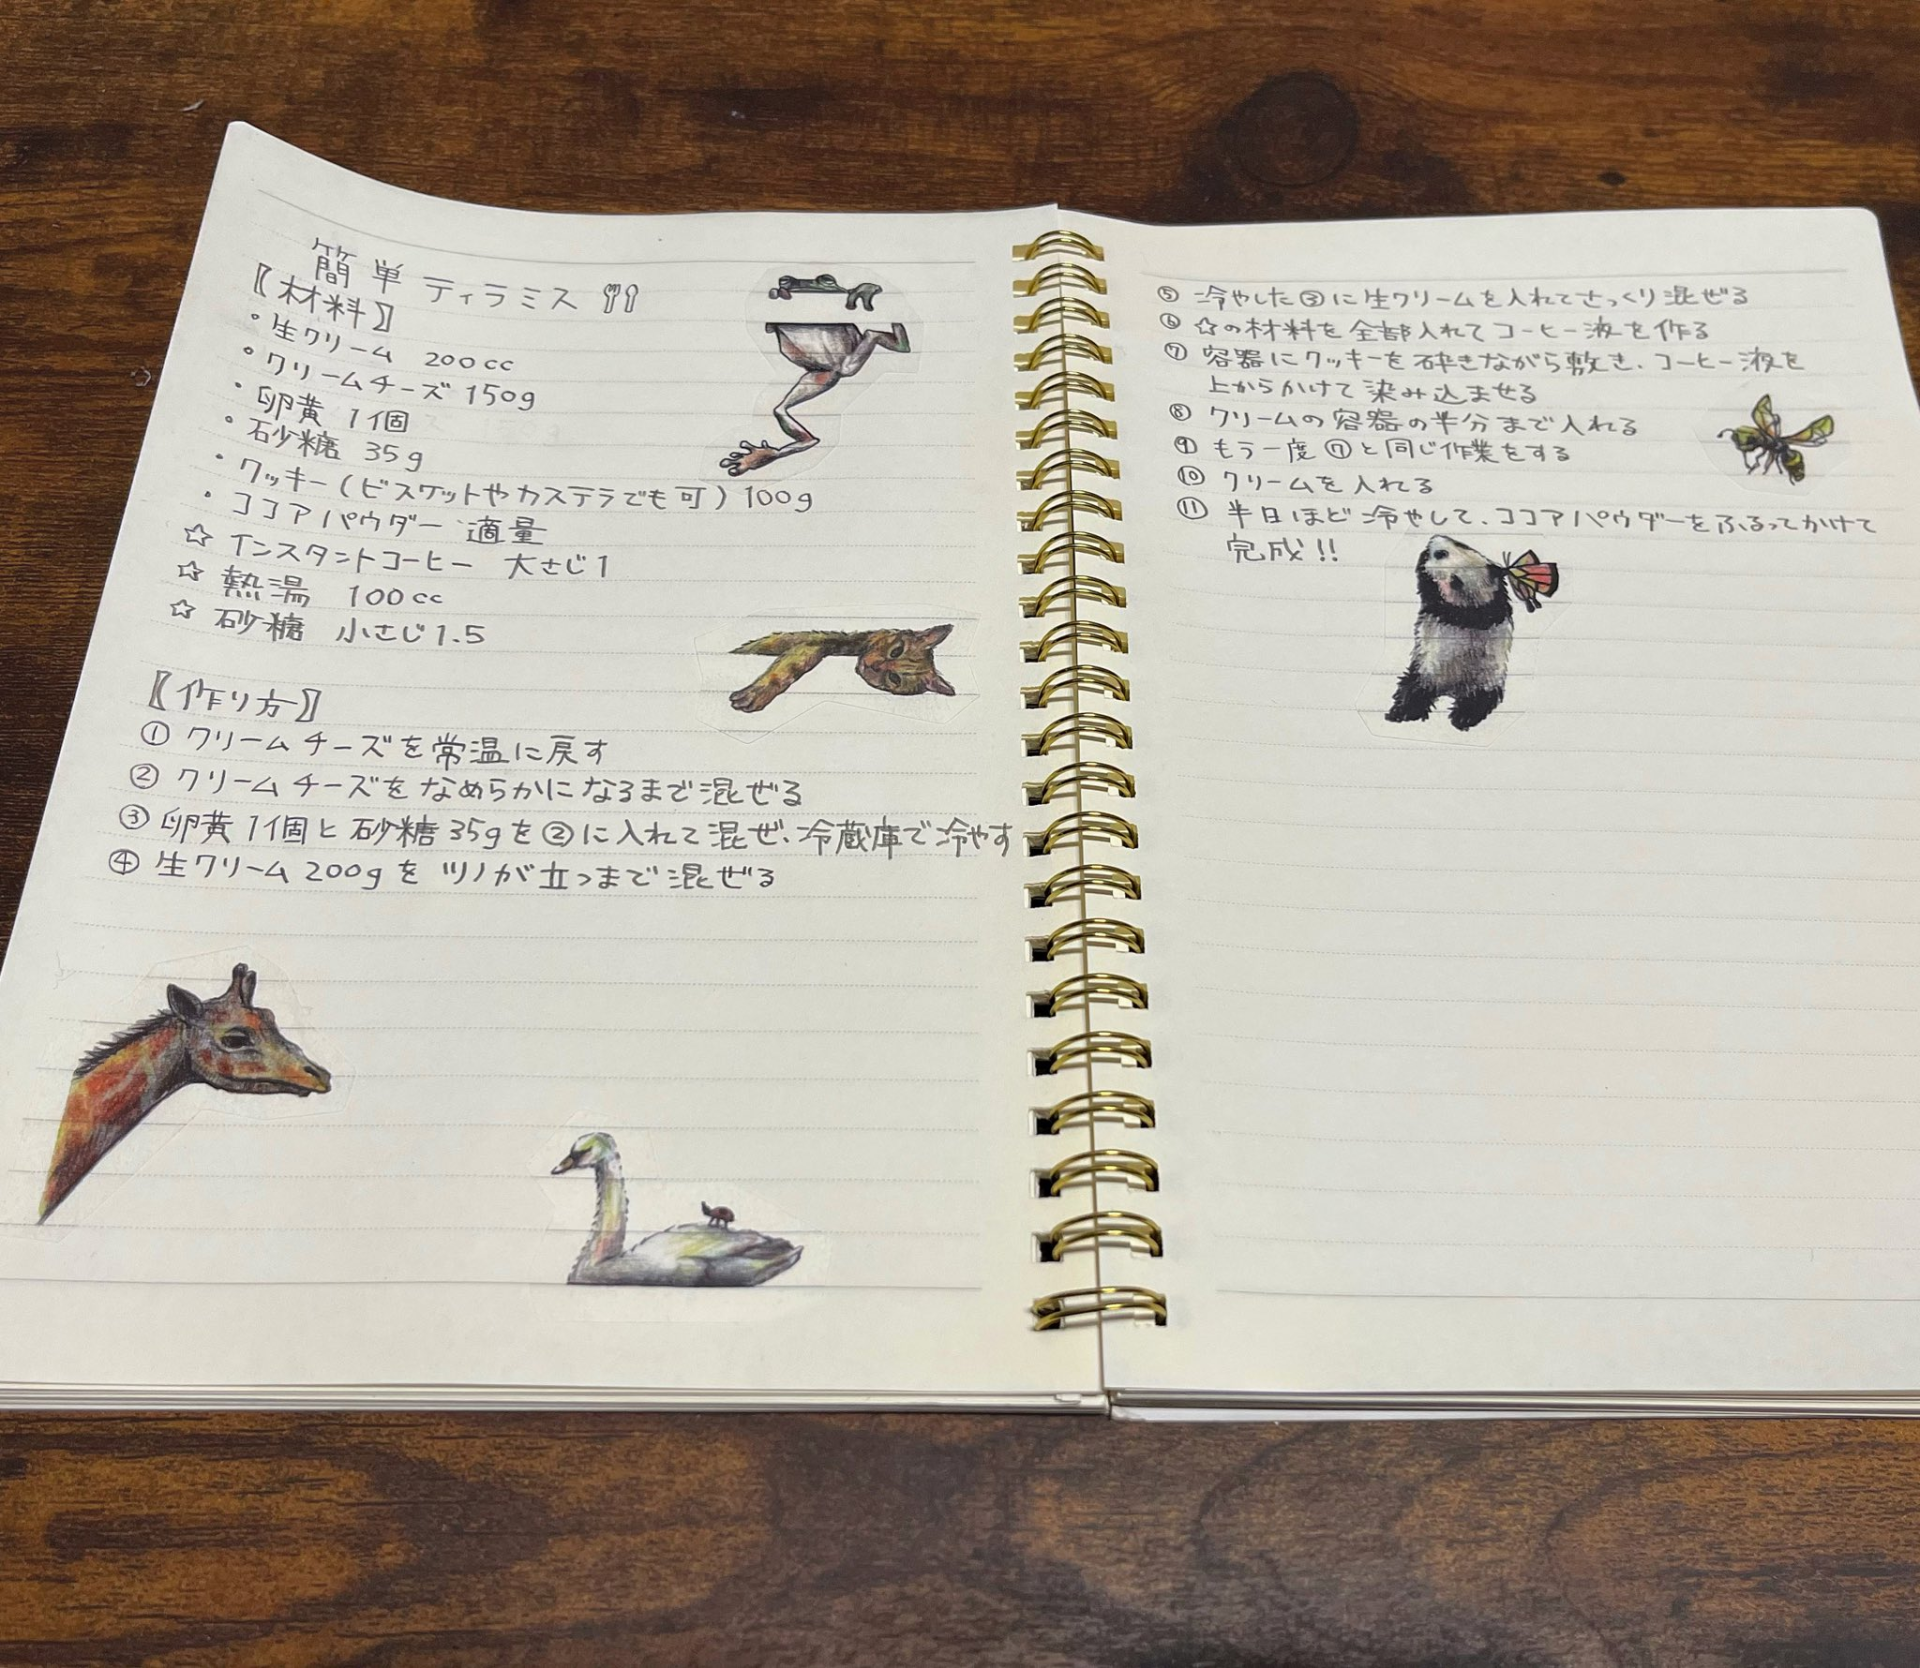 簡単ティラミス
〖材料〗
・生クリーム 200cc
・クリームチーズ 150g
・卵黄 1個
・砂糖 35g
・クッキー(ビスケットやカステラでも可) 100g
・ココアパウダー 適量
☆ インスタントコーヒー 大さじ1
☆ 熱湯 100cc
☆ 砂糖 小さじ1.5
〖作り方〗
① クリームチーズを常温に戻す
② クリームチーズをなめらかになるまで混ぜる
③ 卵黄1個と砂糖35gを②に入れて混ぜ、冷蔵庫で冷やす
④ 生クリーム200gをツノが立つまで混ぜる
⑤ 冷やした③に生クリームを入れてさっくり混ぜる
⑥ ☆の材料を全部入れてコーヒー液を作る
⑦ 容器にクッキーを砕きながら敷き、コーヒー液を
上からかけて染み込ませる
⑧ クリームの容器の半分まで入れる
⑨ もう一度⑦と同じ作業をする
⑩ クリームを入れる
⑪ 半日ほど冷やして、ココアパウダーをふるってかけて
完成!!